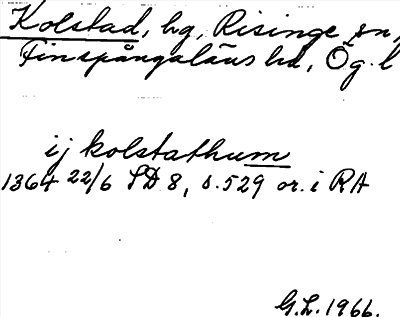 Kolstad, hg, Risinge sn,
Finspångaläns hd, Ög. l
ij kolstathum
1364 22/6 SD 8, s. 529 or. i RA
G.L. 1966.